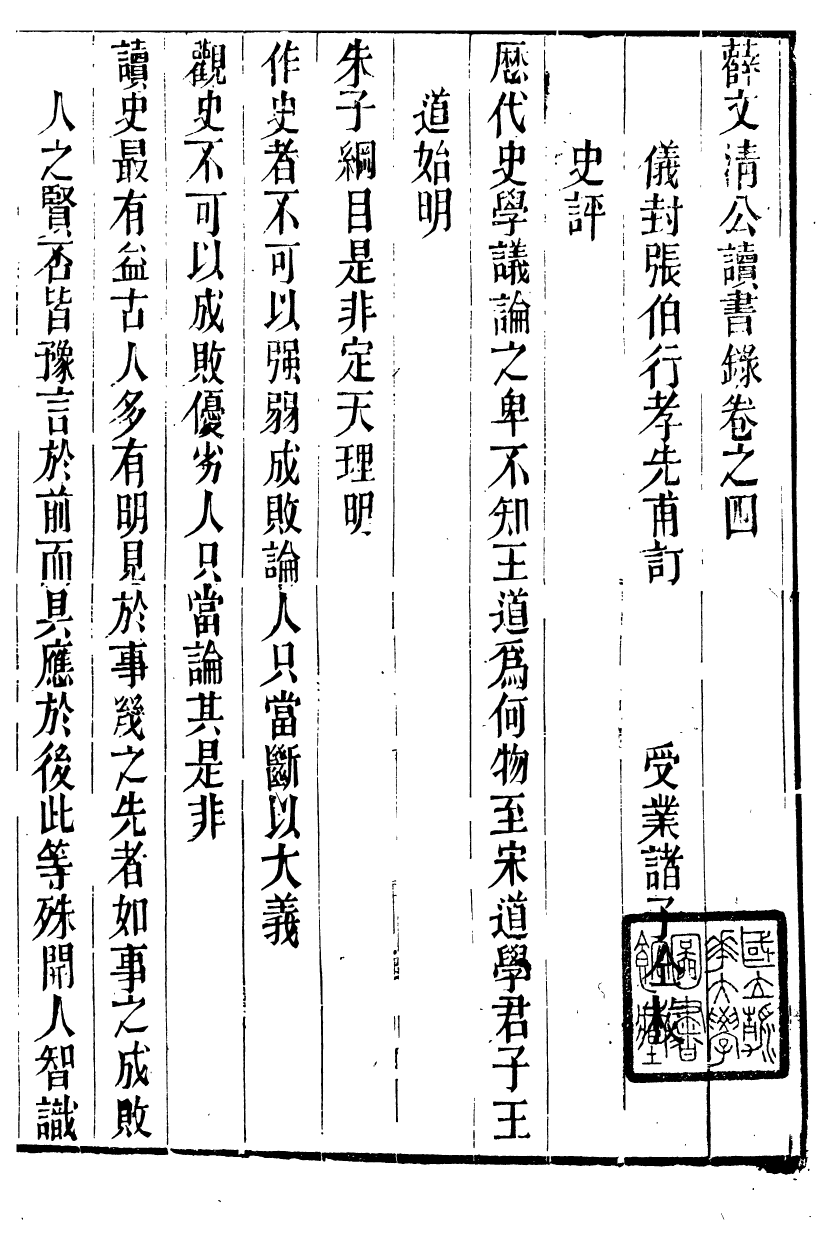 薛文清公讀書錄卷之四
儀封張伯行孝先甫訂　受業諸子仝校
史評
歷代史學議論之卑不知王道爲何物至宋道學君子王
道始明
朱子綱目是非定天理明
作史者不可以强弱成敗論人只當斷以大義
觀史不可以成敗優劣人只當論其是非
讀史最有益古人多有明見於事幾之先者如事之成敗
人之賢否皆豫言於前而具應於後此等殊開人智識
國立清華大學圖書館藏